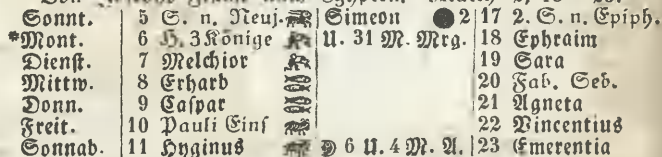 Sonnt. 5 S. n. Neuj. Simeon ● 2 17 2. S. n. Epiph.
*Mont. 6 H. 3 Könige U. 31 M. Mrg. 18 Ephraim
Dienſt. 7 Melchior 19 Sara
Mittw. 8 Erhard 20 Fab. Seb.
Donn. 9 Caſpar 21 Agneta
Freit. 10 Pauli Einſ 22 Vincentius
Sonnab. 11 Hyginus ☽ 6 U. 4 M. A. 23 Emerentia